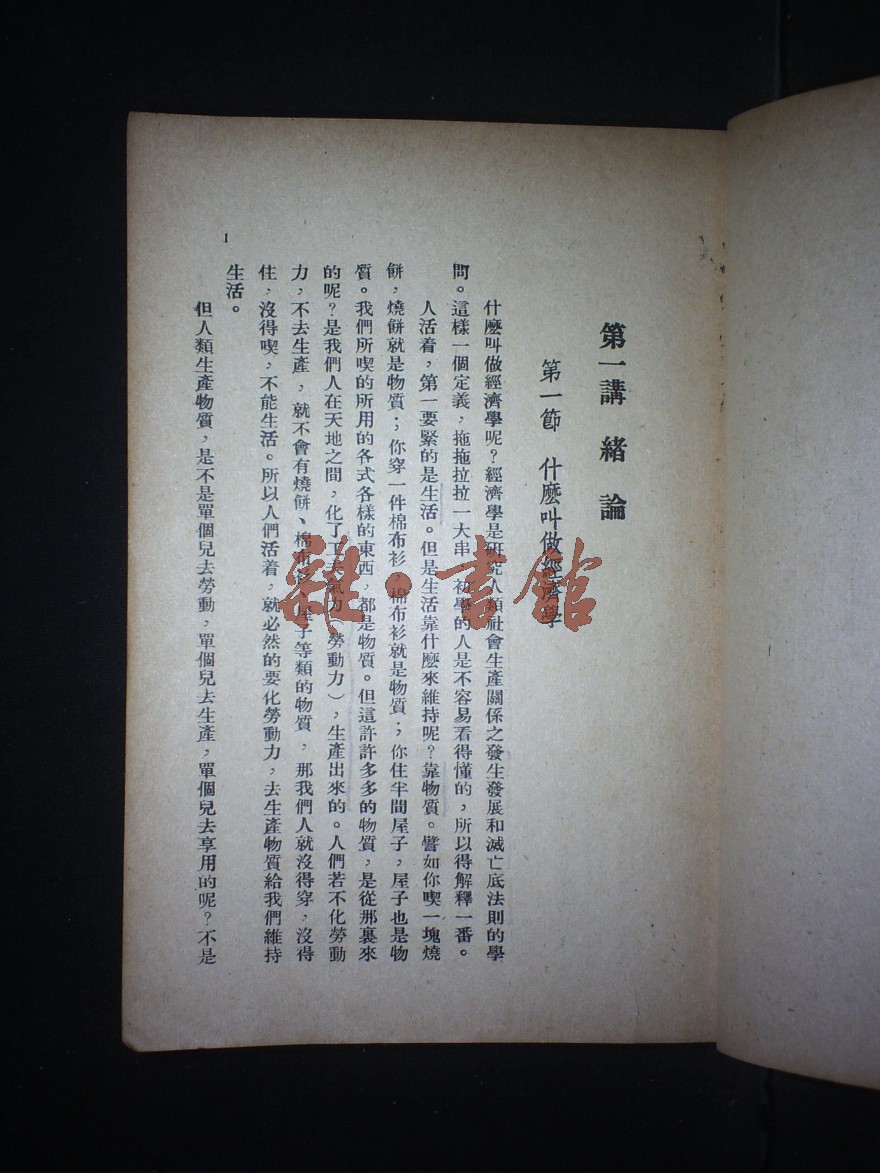 第一講 緒論
第一節 什麽叫做經濟學
什麽叫做經濟學呢？經濟學是研究人類社會生產關係之發生發展和滅亡底法則的學
問。這樣一個定義，拖拖拉拉一大串，初學的人是不容易看得懂的，所以得解釋一番。
人活着，第一要緊的是生活。但是生活靠什麽來維持呢？靠物質。譬如你喫一塊燒
餅，燒餅就是物質；你穿一件棉布衫，棉布衫就是物質；你住半間屋子，屋子也是物
質。我們所喫的所用的各式各樣的東西，都是物質。但這許許多多的物質，是從那裏來
的呢？是我們人在天地之間，化了工夫氣力（勞動力），生產出來的。人們若不化勞動
力，不去生產，就不會有燒餅、棉布衫、屋子等類的物質，那我們人就沒得穿，沒得
住，沒得喫，不能生活。所以人們活着，就必然的要化勞動力，去生產物質給我們維持
生活。
但人類生產物質，是不是單個兒去勞動，單個兒去生產，單個兒去享用的呢？不是
1
雜·書館